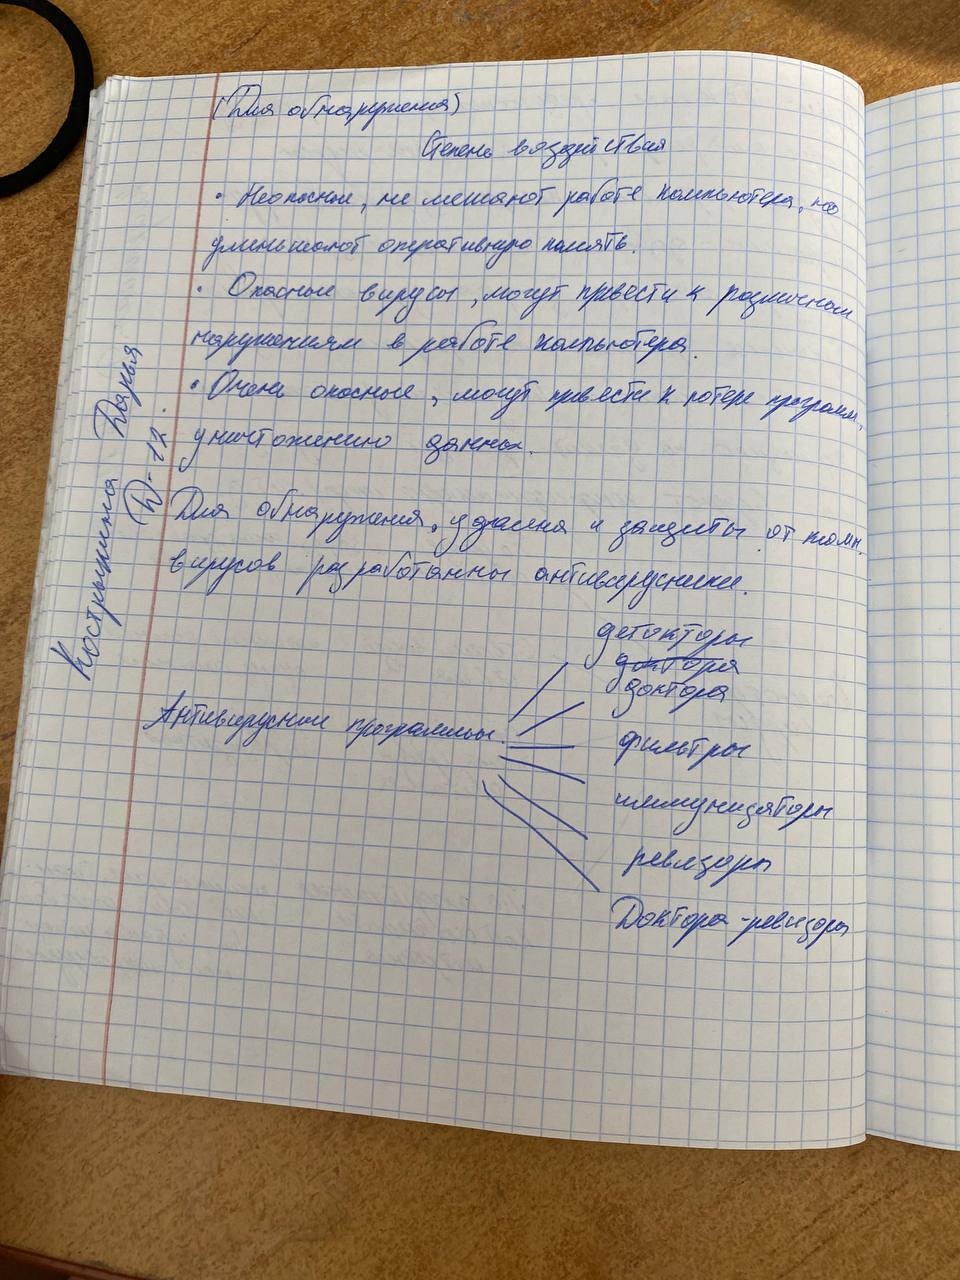 (Для обнаружения)
Степень воздействия
• Неопасные, не мешают работе компьютера, но
уменьшают оперативную память.
• Опасные вирусы, могут привести к различным
нарушениям в работе компьютера.
• Очень опасные, могут привести к потере программ,
уничтожению данных.
Для обнаружения, удаления и защиты от комп.
вирусов разработанны антивирусники.
детокторы
доктора
доктора
Антивирусные программы.
фильтры
иммунизаторы
ревизоры
Доктора-ревизоры
Кострыкина Дарья
Д-12.